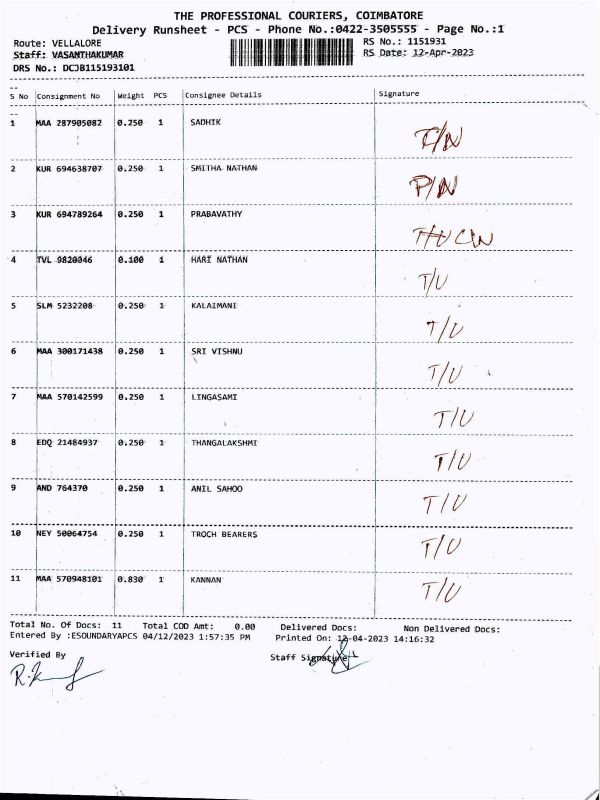 THE PROFESSIONAL COURIERS, COIMBATORE
Delivery Runsheet - PCS - Phone No.:0422-3505555 - Page No.:1
Route: VELLALORE RS No.: 1151931
Staff: VASANTHAKUMAR RS Date: 12-Apr-2023
DRS No.: DCJB115193101
S No Consignment No Weight PCS Consignee Details Signature
1 MAA 287905082 0.250 1 SADHIK
2 KUR 694638707 0.250 1 SMITHA NATHAN P/N
3 KUR 694789264 0.250 1 PRABAVATHY T/U C/N
4 TVL 9820046 0.100 1 HARI NATHAN T/U
5 SLM 5232208 0.250 1 KALAIMANI T/U
6 MAA 300171438 0.250 1 SRI VISHNU T/U
7 MAA 570142599 0.250 1 LINGASAMI T/U
8 EDQ 21484937 0.250 1 THANGALAKSHMI T/U
9 AND 764370 0.250 1 ANIL SAHOO T/U
10 NEY 50064754 0.250 1 TROCH BEARERS T/U
11 MAA 570948101 0.830 1 KANNAN T/U
Total No. Of Docs: 11 Total COD Amt: 0.00 Delivered Docs: Non Delivered Docs:
Entered By :ESOUNDARYAPCS 04/12/2023 1:57:35 PM Printed On: 12-04-2023 14:16:32
Verified By Staff Signature